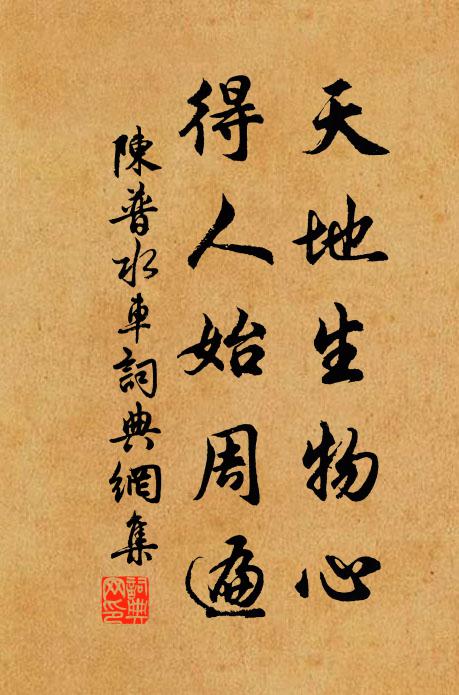 天地生物心
得人始周遍
陳普水車詞典網集
詞典网印